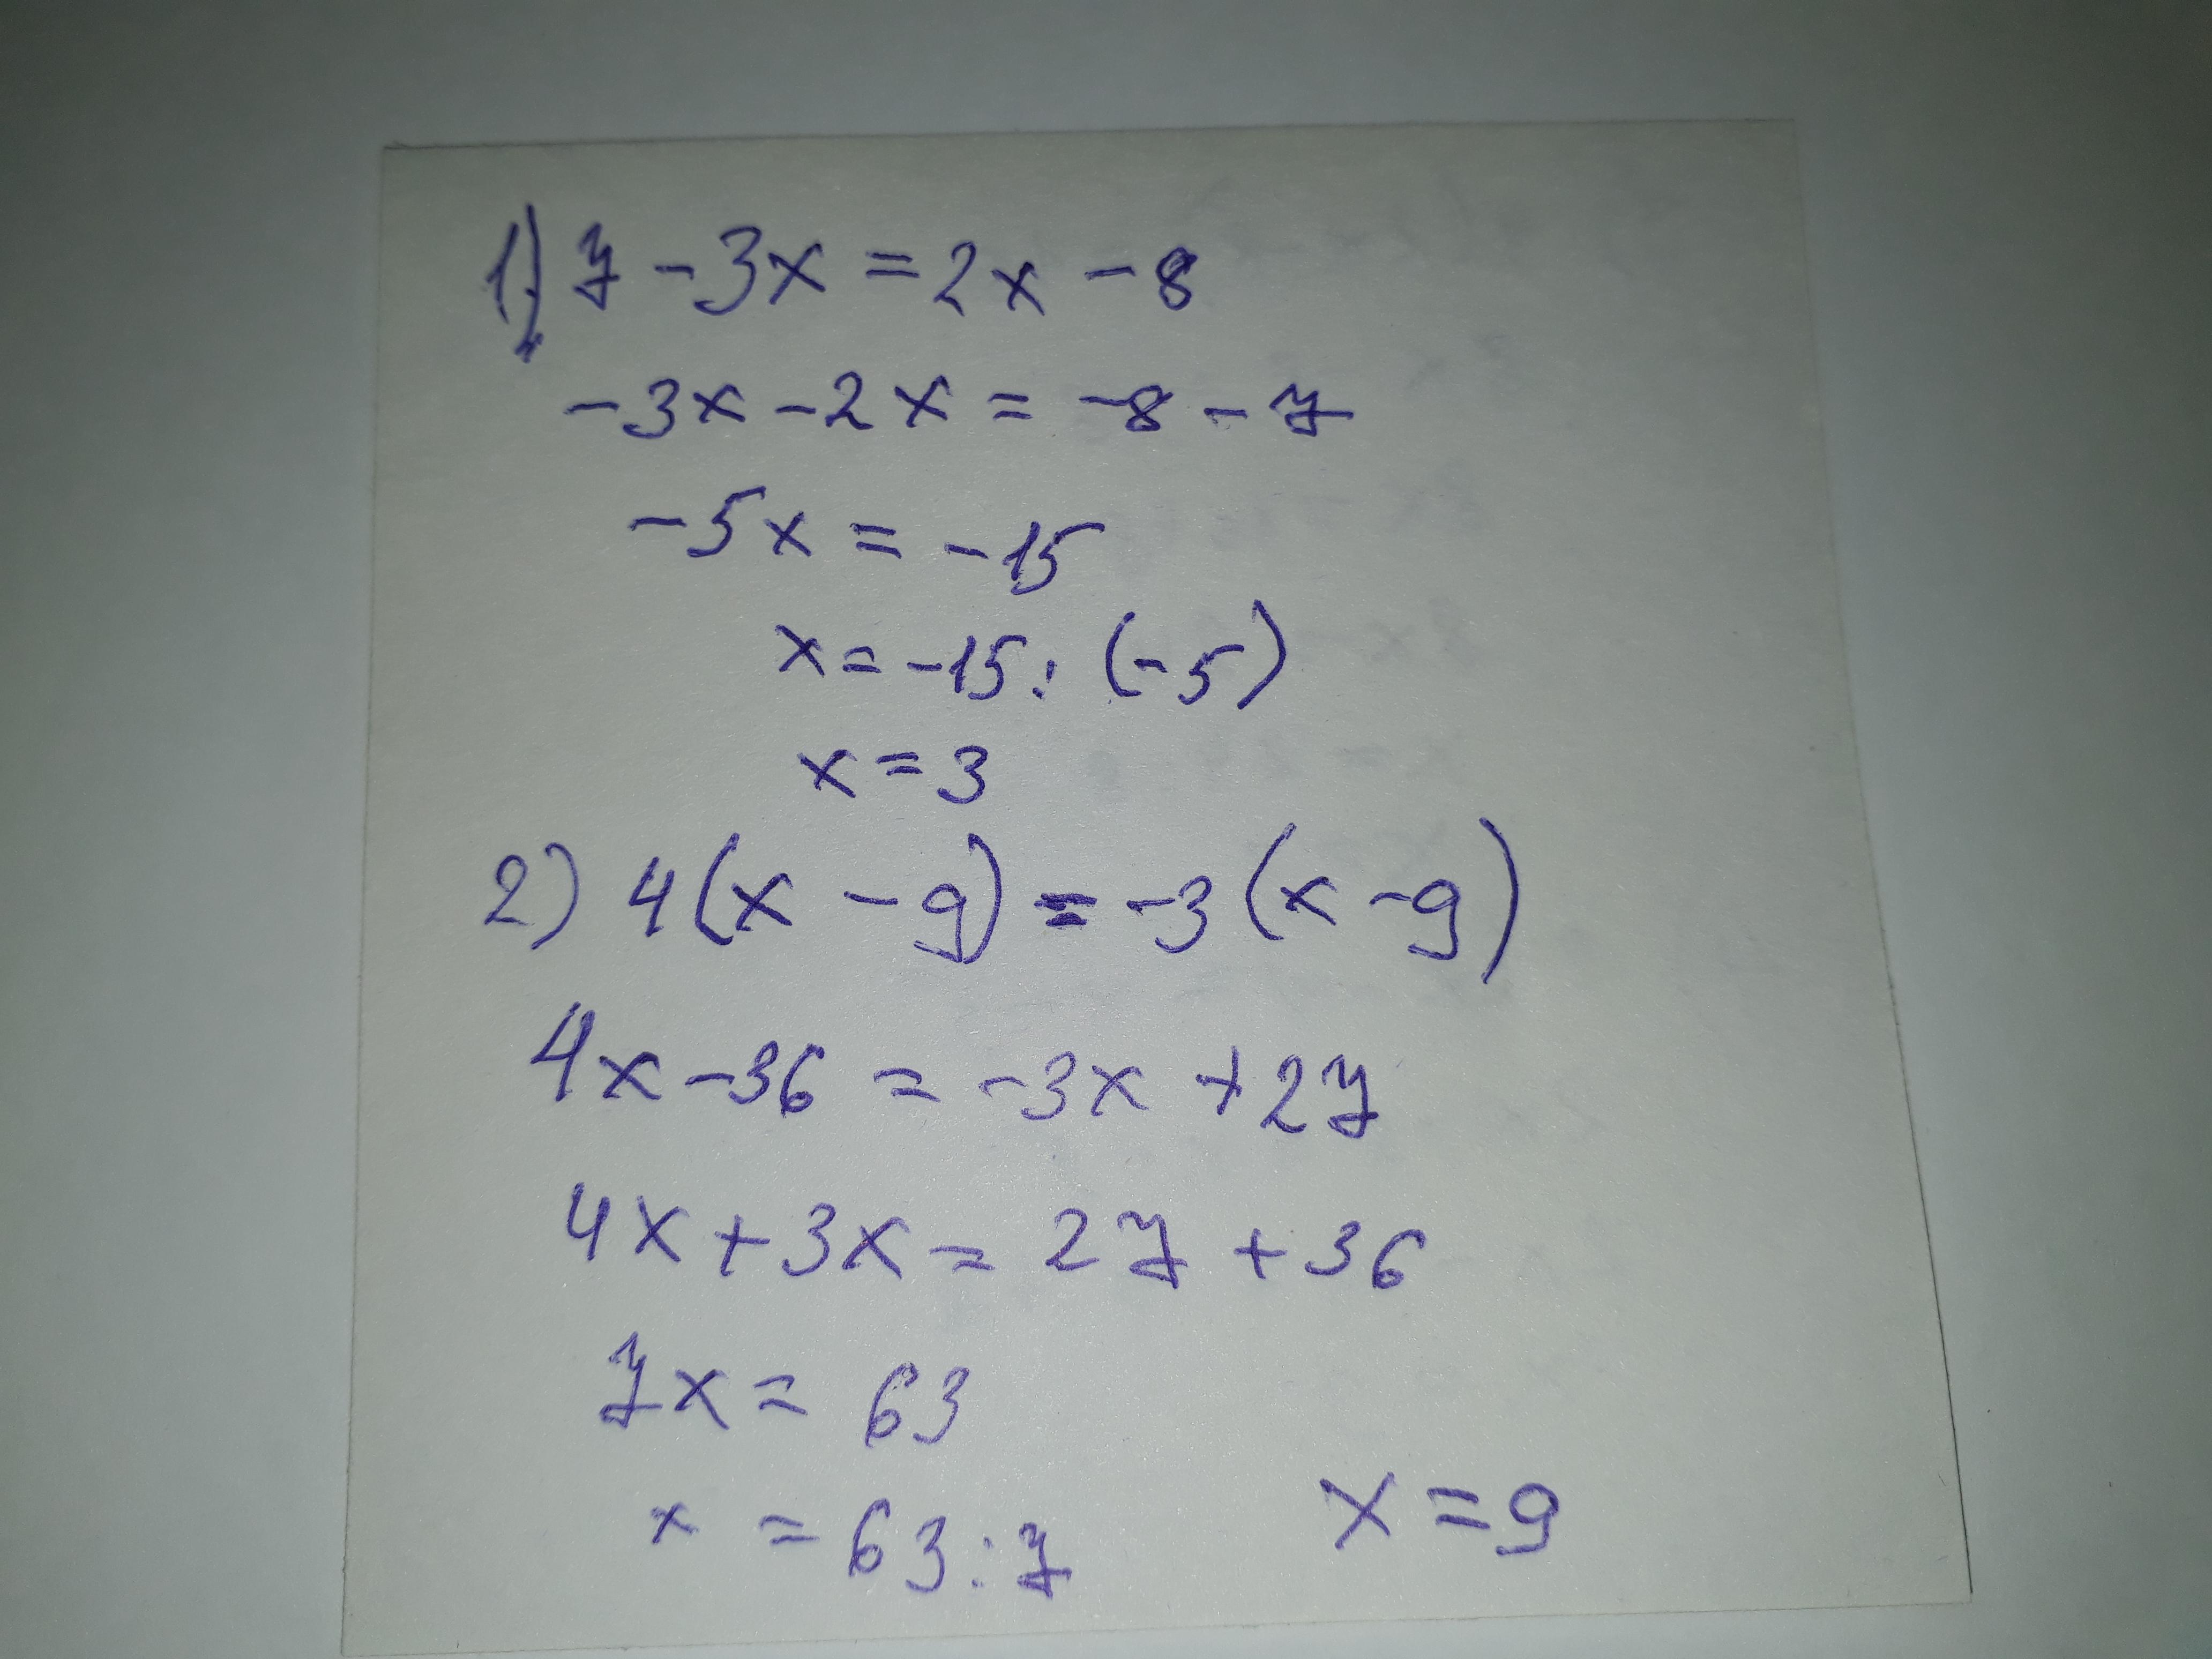 1) 7 - 3x = 2x - 8
-3x - 2x = -8 - 7
-5x = -15
x = -15 : (-5)
x = 3
2) 4(x - 9) = -3(x - 9)
4x - 36 = -3x + 27
4x + 3x = 27 + 36
7x = 63
x = 63 : 7 x = 9